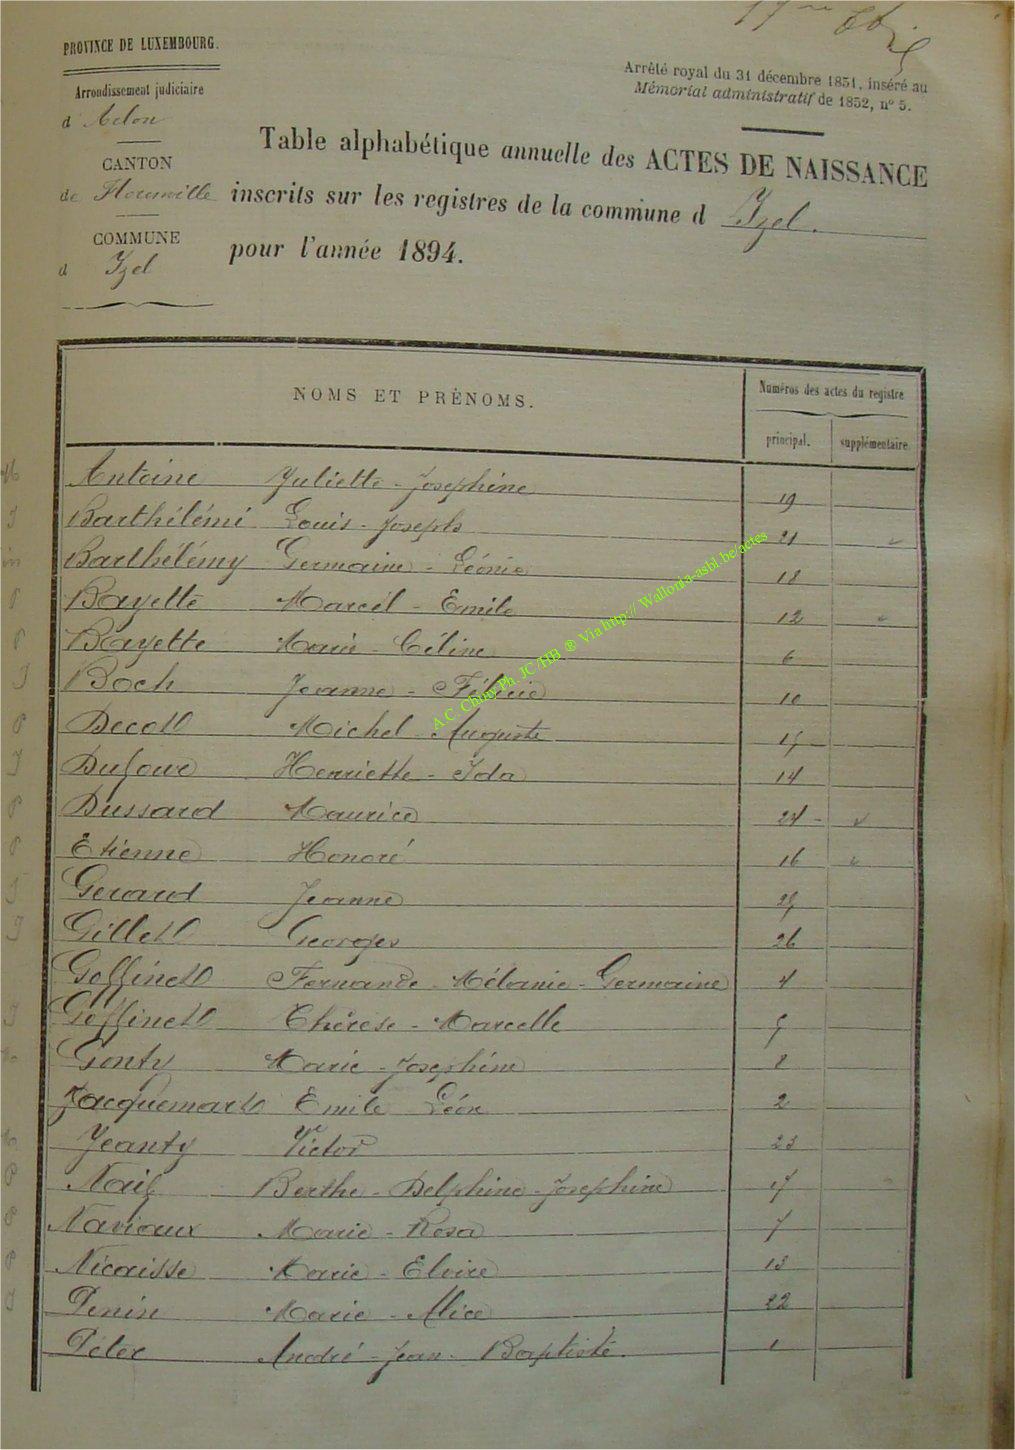 PROVINCE DE LUXEMBOURG.
Arrondissement judiciaire
d'Arlon
CANTON
de Florenville
COMMUNE
d Izel
Arrêté royal du 31 décembre 1851, inséré au
Mémorial administratif de 1852, nº 5.
Table alphabétique annuelle des ACTES DE NAISSANCE
inscrits sur les registres de la commune d Izel.
pour l'année 1894.
NOMS ET PRÉNOMS.
Numéros des actes du registre
principal. supplémentaire.
Antoine Juliette-Joséphine 19
Barthélémi Louis-Joseph 21
Barthélémy Germaine-Léonie 18
Bayette Marcel-Emile 12
Bayette Marie-Céline 6
Boch Jeanne-Félicie 10
Decoll Michel-Auguste 15
Dufour Henriette-Ida 14
Dussard Maurice 24
Etienne Honoré 16
Gerard Jeanne 25
Gillet Georges 26
Goffinet Fernande-Mélanie-Germaine 4
Goffinet Thérèse-Marcelle 5
Gonty Marie-Joséphine 8
Jacquemart Emile Léon 2
Jeanty Victor 23
Naif Berthe-Delphine-Joséphine 17
Naviaux Marie-Rosa 7
Nicaisse Marie-Elvire 13
Penin Marie-Alice 22
Péler André-Jean-Baptiste. 1
A.C. Chiny Ph. JC/HB ® Via http:// Wallonia-asbl.be/actes